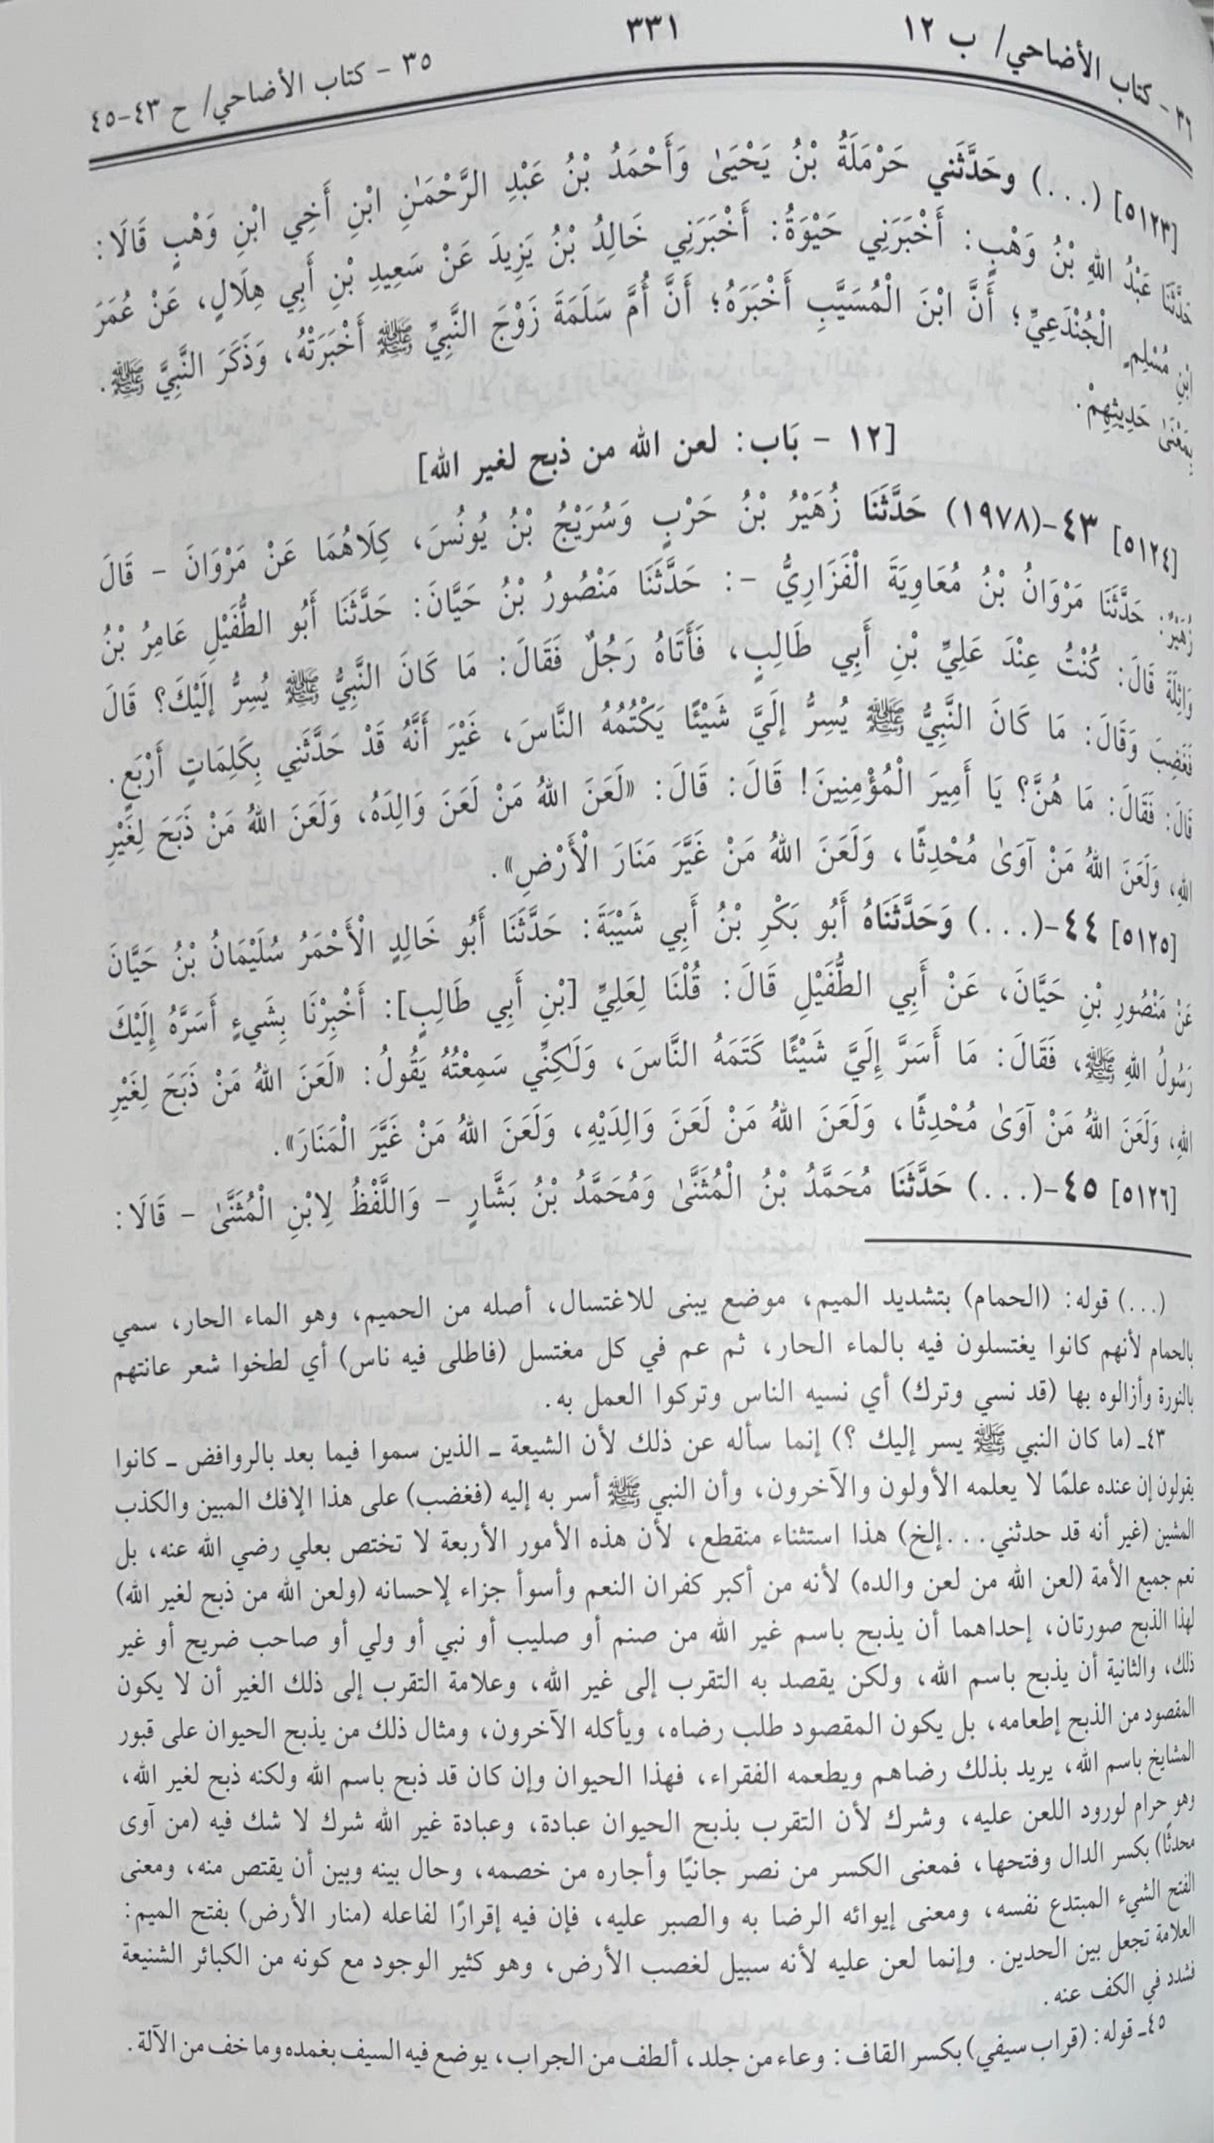 ٣٦ - كتاب الأضاحي/ ب ١٢
٣٣١
٣٥ - كتاب الأضاحي/ ح ٤٣-٤٥
[٥١٢٣] (...) وحَدَّثَني حَرْمَلَةُ بْنُ يَحْيَىٰ وَأَحْمَدُ بْنُ عَبْدِ الرَّحْمَـٰنِ ابْنِ أَخِي ابْنِ وَهْبٍ قَالَا:
حَدَّثَنَا عَبْدُ اللهِ بْنُ وَهْبٍ: أَخْبَرَنِي حَيْوَةُ: أَخْبَرَنِي خَالِدُ بْنُ يَزِيدَ عَنْ سَعِيدِ بْنِ أَبِي هِلَالٍ، عَنْ عُمَرَ
ابْنِ مُسْلِمٍ الْجُنْدَعِيِّ؛ أَنَّ ابْنَ الْمُسَيَّبِ أَخْبَرَهُ؛ أَنَّ أُمَّ سَلَمَةَ زَوْجَ النَّبِيِّ ﷺ أَخْبَرَتْهُ، وَذَكَرَ النَّبِيَّ ﷺ.
بِمَعْنَىٰ حَدِيثِهِمْ.
[١٢ - بَاب: لعن الله من ذبح لغير الله]
[٥١٢٤] ٤٣-(١٩٧٨) حَدَّثَنَا زُهَيْرُ بْنُ حَرْبٍ وَسُرَيْجُ بْنُ يُونُسَ، كِلَاهُمَا عَنْ مَرْوَانَ - قَالَ
زُهَيْرٌ: حَدَّثَنَا مَرْوَانُ بْنُ مُعَاوِيَةَ الْفَزَارِيُّ -: حَدَّثَنَا مَنْصُورُ بْنُ حَيَّانَ: حَدَّثَنَا أَبُو الطُّفَيْلِ عَامِرُ بْنُ
وَاثِلَةَ قَالَ: كُنْتُ عِنْدَ عَلِيِّ بْنِ أَبِي طَالِبٍ، فَأَتَاهُ رَجُلٌ فَقَالَ: مَا كَانَ النَّبِيُّ ﷺ يُسِرُّ إِلَيْكَ؟ قَالَ
فَغَضِبَ وَقَالَ: مَا كَانَ النَّبِيُّ ﷺ يُسِرُّ إِلَيَّ شَيْئًا يَكْتُمُهُ النَّاسَ، غَيْرَ أَنَّهُ قَدْ حَدَّثَنِي بِكَلِمَاتٍ أَرْبَعٍ.
قَالَ: فَقَالَ: مَا هُنَّ؟ يَا أَمِيرَ الْمُؤْمِنِينَ! قَالَ: قَالَ: «لَعَنَ اللهُ مَنْ لَعَنَ وَالِدَهُ، وَلَعَنَ اللهُ مَنْ ذَبَحَ لِغَيْرِ
اللهِ، وَلَعَنَ اللهُ مَنْ آوَىٰ مُحْدِثًا، وَلَعَنَ اللهُ مَنْ غَيَّرَ مَنَارَ الْأَرْضِ».
[٥١٢٥] ٤٤-(...) وَحَدَّثَنَاهُ أَبُو بَكْرِ بْنُ أَبِي شَيْبَةَ: حَدَّثَنَا أَبُو خَالِدٍ الْأَحْمَرُ سُلَيْمَانُ بْنُ حَيَّانَ
عَنْ مَنْصُورِ بْنِ حَيَّانَ، عَنْ أَبِي الطُّفَيْلِ قَالَ: قُلْنَا لِعَلِيِّ [بْنِ أَبِي طَالِبٍ]: أَخْبِرْنَا بِشَيءٍ أَسَرَّهُ إِلَيْكَ
رَسُولُ اللهِ ﷺ، فَقَالَ: مَا أَسَرَّ إِلَيَّ شَيْئًا كَتَمَهُ النَّاسَ، وَلَـٰكِنِّي سَمِعْتُهُ يَقُولُ: «لَعَنَ اللهُ مَنْ ذَبَحَ لِغَيْرِ
اللهِ، وَلَعَنَ اللهُ مَنْ آوَىٰ مُحْدِثًا، وَلَعَنَ اللهُ مَنْ لَعَنَ وَالِدَيْهِ، وَلَعَنَ اللهُ مَنْ غَيَّرَ الْمَنَارَ».
[٥١٢٦] ٤٥-(...) حَدَّثَنَا مُحَمَّدُ بْنُ الْمُثَنَّىٰ وَمُحَمَّدُ بْنُ بَشَّارٍ - وَاللَّفْظُ لِابْنِ الْمُثَنَّىٰ - قَالَا:
(...) قوله: (الحمام) بتشديد الميم، موضع يبنى للاغتسال، أصله من الحميم، وهو الماء الحار، سمي
بالحمام لأنهم كانوا يغتسلون فيه بالماء الحار، ثم عم في كل مغتسل (فاطلى فيه ناس) أي لطخوا شعر عانتهم
بالنورة وأزالوه بها (قد نسي وترك) أي نسيه الناس وتركوا العمل به.
٤٣ـ (ما كان النبي ﷺ يسر إليك ؟) إنما سأله عن ذلك لأن الشيعة ـ الذين سموا فيما بعد بالروافض ـ كانوا
يقولون إن عنده علمًا لا يعلمه الأولون والآخرون، وأن النبي ﷺ أسر به إليه (فغضب) على هذا الإفك المبين والكذب
المشين (غير أنه قد حدثني...إلخ) هذا استثناء منقطع، لأن هذه الأمور الأربعة لا تختص بعلي رضي الله عنه، بل
تعم جميع الأمة (لعن الله من لعن والده) لأنه من أكبر كفران النعم وأسوأ جزاء لإحسانه (ولعن الله من ذبح لغير الله)
لهذا الذبح صورتان، إحداهما أن يذبح باسم غير الله من صنم أو صليب أو نبي أو ولي أو صاحب ضريح أو غير
ذلك، والثانية أن يذبح باسم الله، ولكن يقصد به التقرب إلى غير الله، وعلامة التقرب إلى ذلك الغير أن لا يكون
المقصود من الذبح إطعامه، بل يكون المقصود طلب رضاه، ويأكله الآخرون، ومثال ذلك من يذبح الحيوان على قبور
المشايخ باسم الله، يريد بذلك رضاهم ويطعمه الفقراء، فهذا الحيوان وإن كان قد ذبح باسم الله ولكنه ذبح لغير الله،
وهو حرام لورود اللعن عليه، وشرك لأن التقرب بذبح الحيوان عبادة، وعبادة غير الله شرك لا شك فيه (من آوى
محدثًا) بكسر الدال وفتحها، فمعنى الكسر من نصر جانيًا وأجاره من خصمه، وحال بينه وبين أن يقتص منه، ومعنى
الفتح الشيء المبتدع نفسه، ومعنى إيوائه الرضا به والصبر عليه، فإن فيه إقرارًا لفاعله (منار الأرض) بفتح الميم:
العلامة تجعل بين الحدين. وإنما لعن عليه لأنه سبيل لغصب الأرض، وهو كثير الوجود مع كونه من الكبائر الشنيعة
فشدد في الكف عنه.
٤٥ـ قوله: (قراب سيفي) بكسر القاف: وعاء من جلد، ألطف من الجراب، يوضع فيه السيف بغمده وما خف من الآلة.